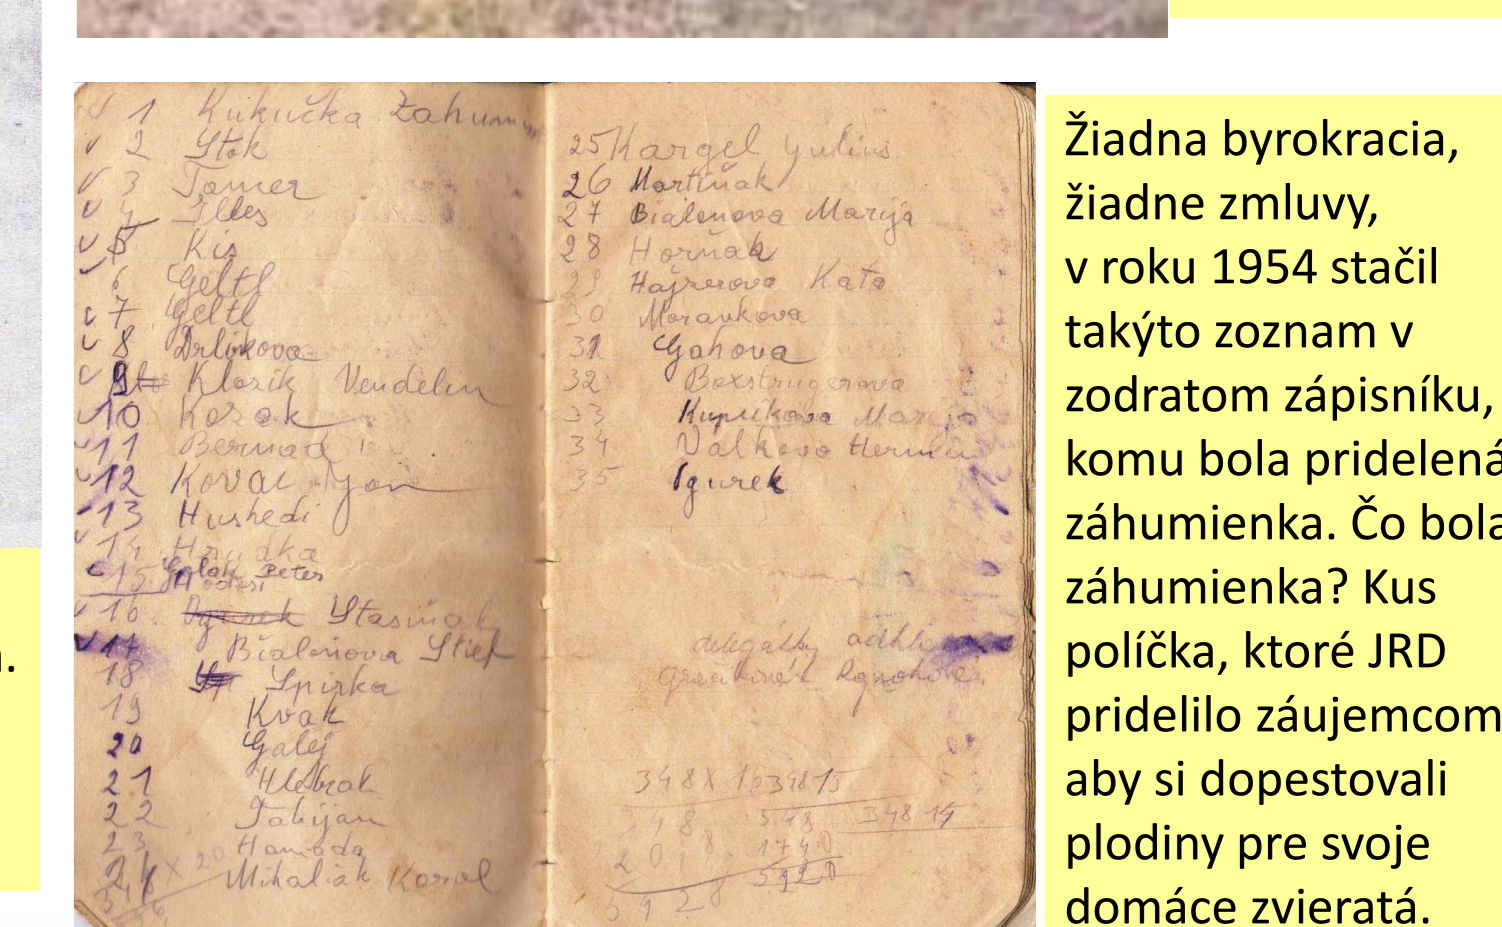 1 Kukučka Zahum
2 Stok
3 Tomer
4 Illes
5 Kis
6 Geltl
7 Geltl
8 Drlikova
9 Klozik Vendelin
10 Kozak
11 Bernad
12 Kovac Jan
13 Hushedi
14 Hrudka
15 Golak Peter
16 Stasinak
17 Bialoňova Stief
18 Spirka
19 Kvak
20 Galej
21 Hlebrak
22 Tabijan
23 Hamada
24 Mihaliak Karol
25 Kargel Julius
26 Martiňak
27 Bialonova Marija
28 Horňak
29 Hajrerova Kata
30 Moravkova
31 Gahova
32
33 Kuprikova Marija
34 Valkova Hermin
35 Igurek
348 x
348 548 348 14
2018 1740
5928 5920
Žiadna byrokracia,
žiadne zmluvy,
v roku 1954 stačil
takýto zoznam v
zodratom zápisníku,
komu bola pridelená
záhumienka. Čo bola
záhumienka? Kus
políčka, ktoré JRD
pridelilo záujemcom
aby si dopestovali
plodiny pre svoje
domáce zvieratá.